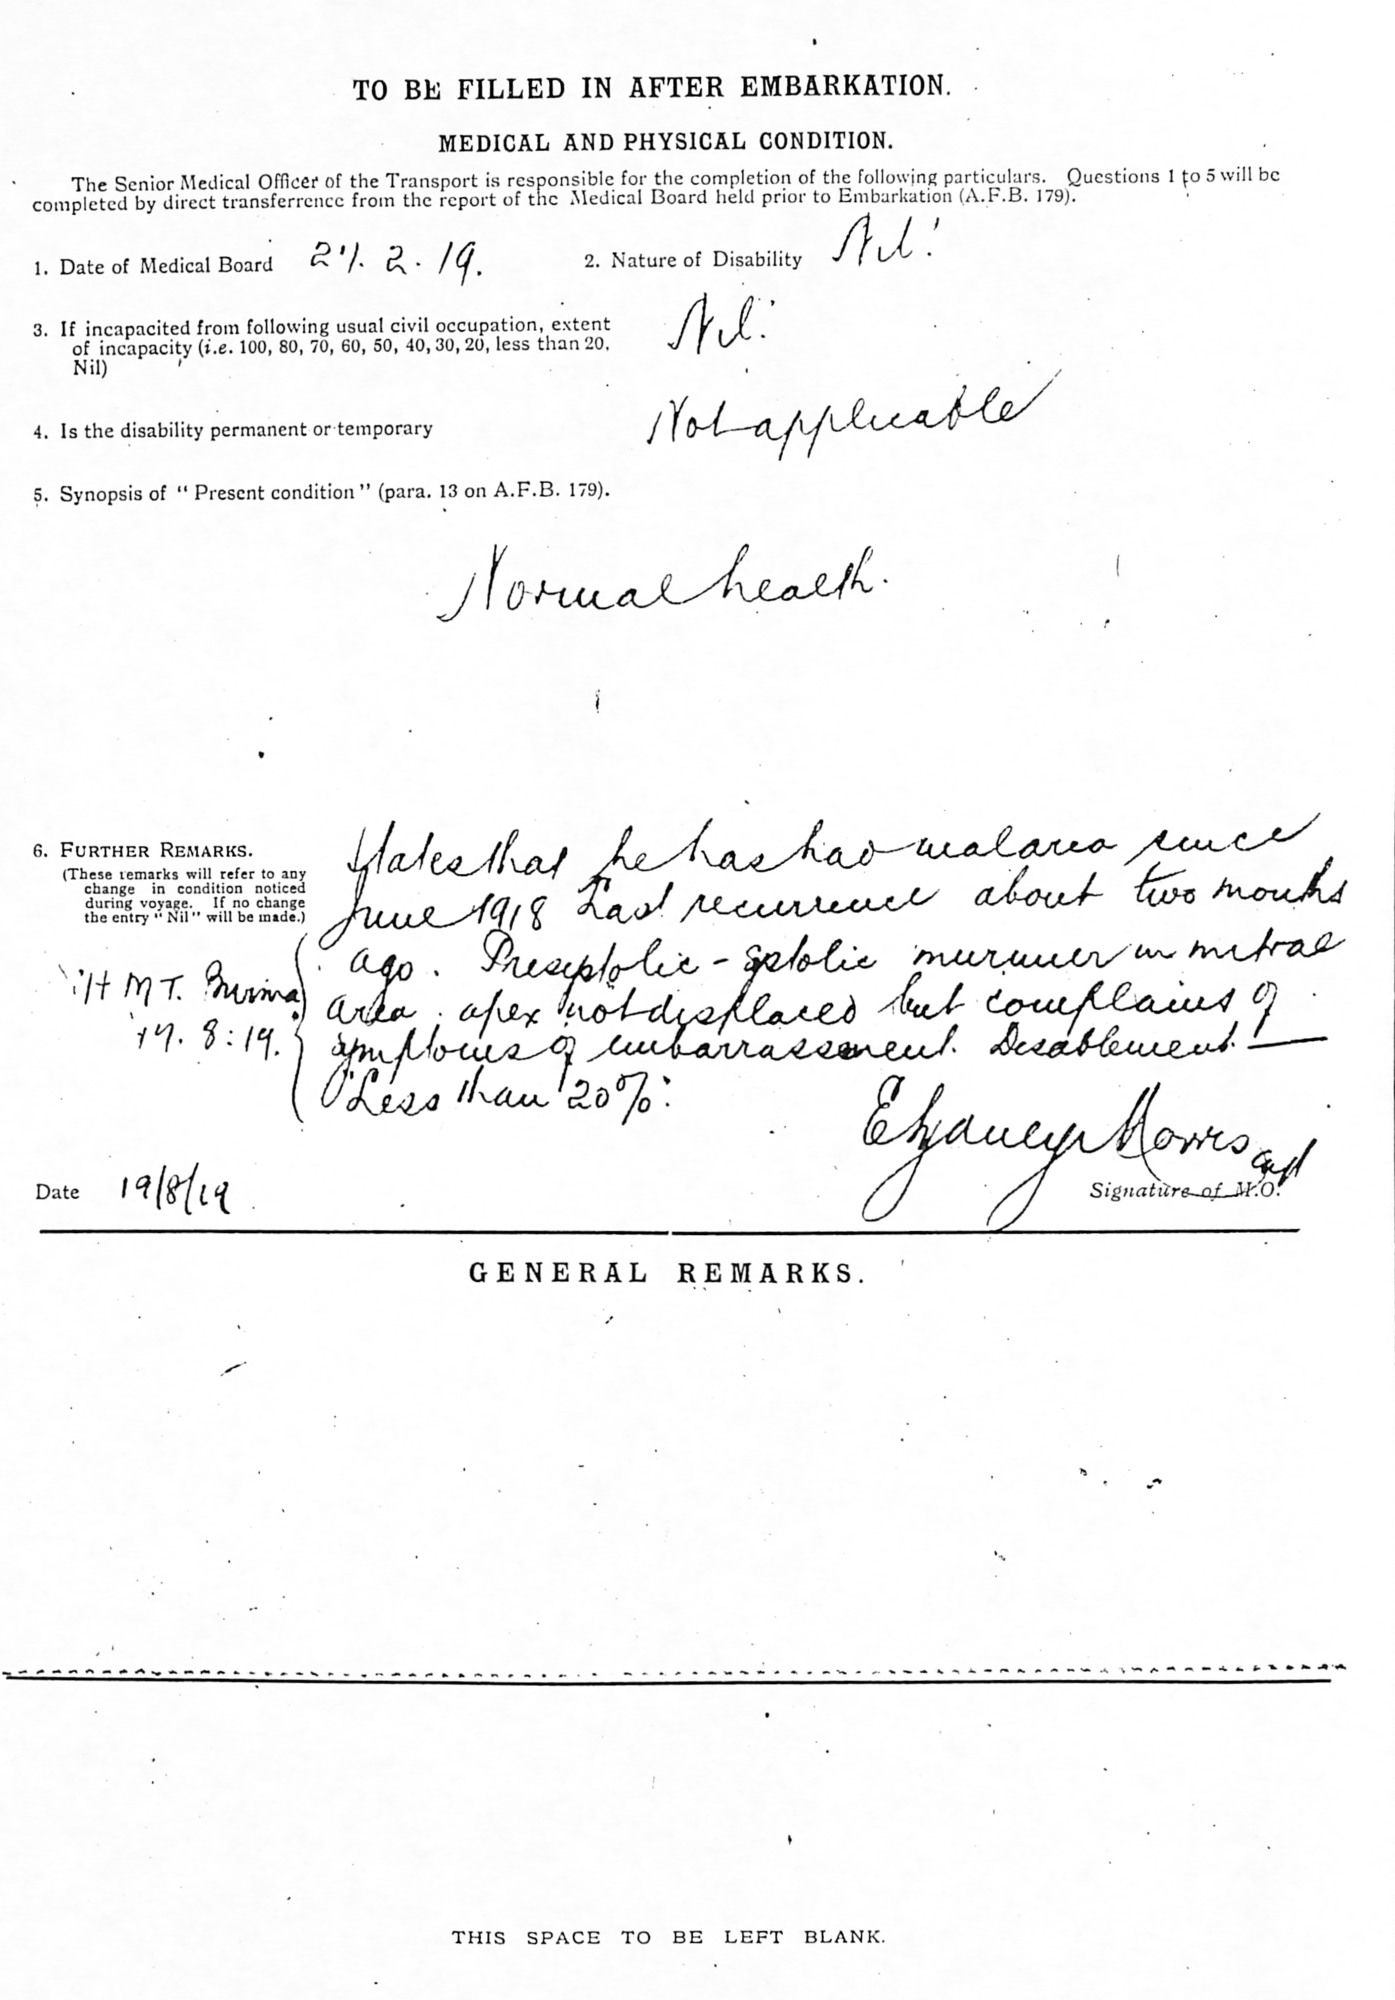 TO BE FILLED IN AFTER EMBARKATION.
MEDICAL AND PHYSICAL CONDITION.
The Senior Medical Officer of the Transport is responsible for the completion of the following particulars. Questions 1 to 5 will be
completed by direct transferrence from the report of the Medical Board held prior to Embarkation (A.F.B. 179).
1. Date of Medical Board 2. 19. 2. Nature of Disability Nil
3. If incapacited from following usual civil occupation, extent
of incapacity (i.e. 100, 80, 70, 60, 50, 40, 30, 20, less than 20, Nil.
Nil)
4. Is the disability permanent or temporary Not applicable
5. Synopsis of " Present condition " (para. 13 on A.F.B. 179).
Normal health.
6. FURTHER REMARKS.
(These remarks will refer to any
change in condition noticed
during voyage. If no change
the entry " Nil " will be made.)
States that he has had malaria since
June 1918 Last recurrence about two months
ago. Presystolic - systolic murmur in mitral
area. apex not displaced but complains of
symptoms of embarrassment. Disablement —
Less than 20%.
H M T. Burma
17. 8: 19.
Date 19/8/19
E Sydney Morris Capt
Signature of M.O.
GENERAL REMARKS.
THIS SPACE TO BE LEFT BLANK.